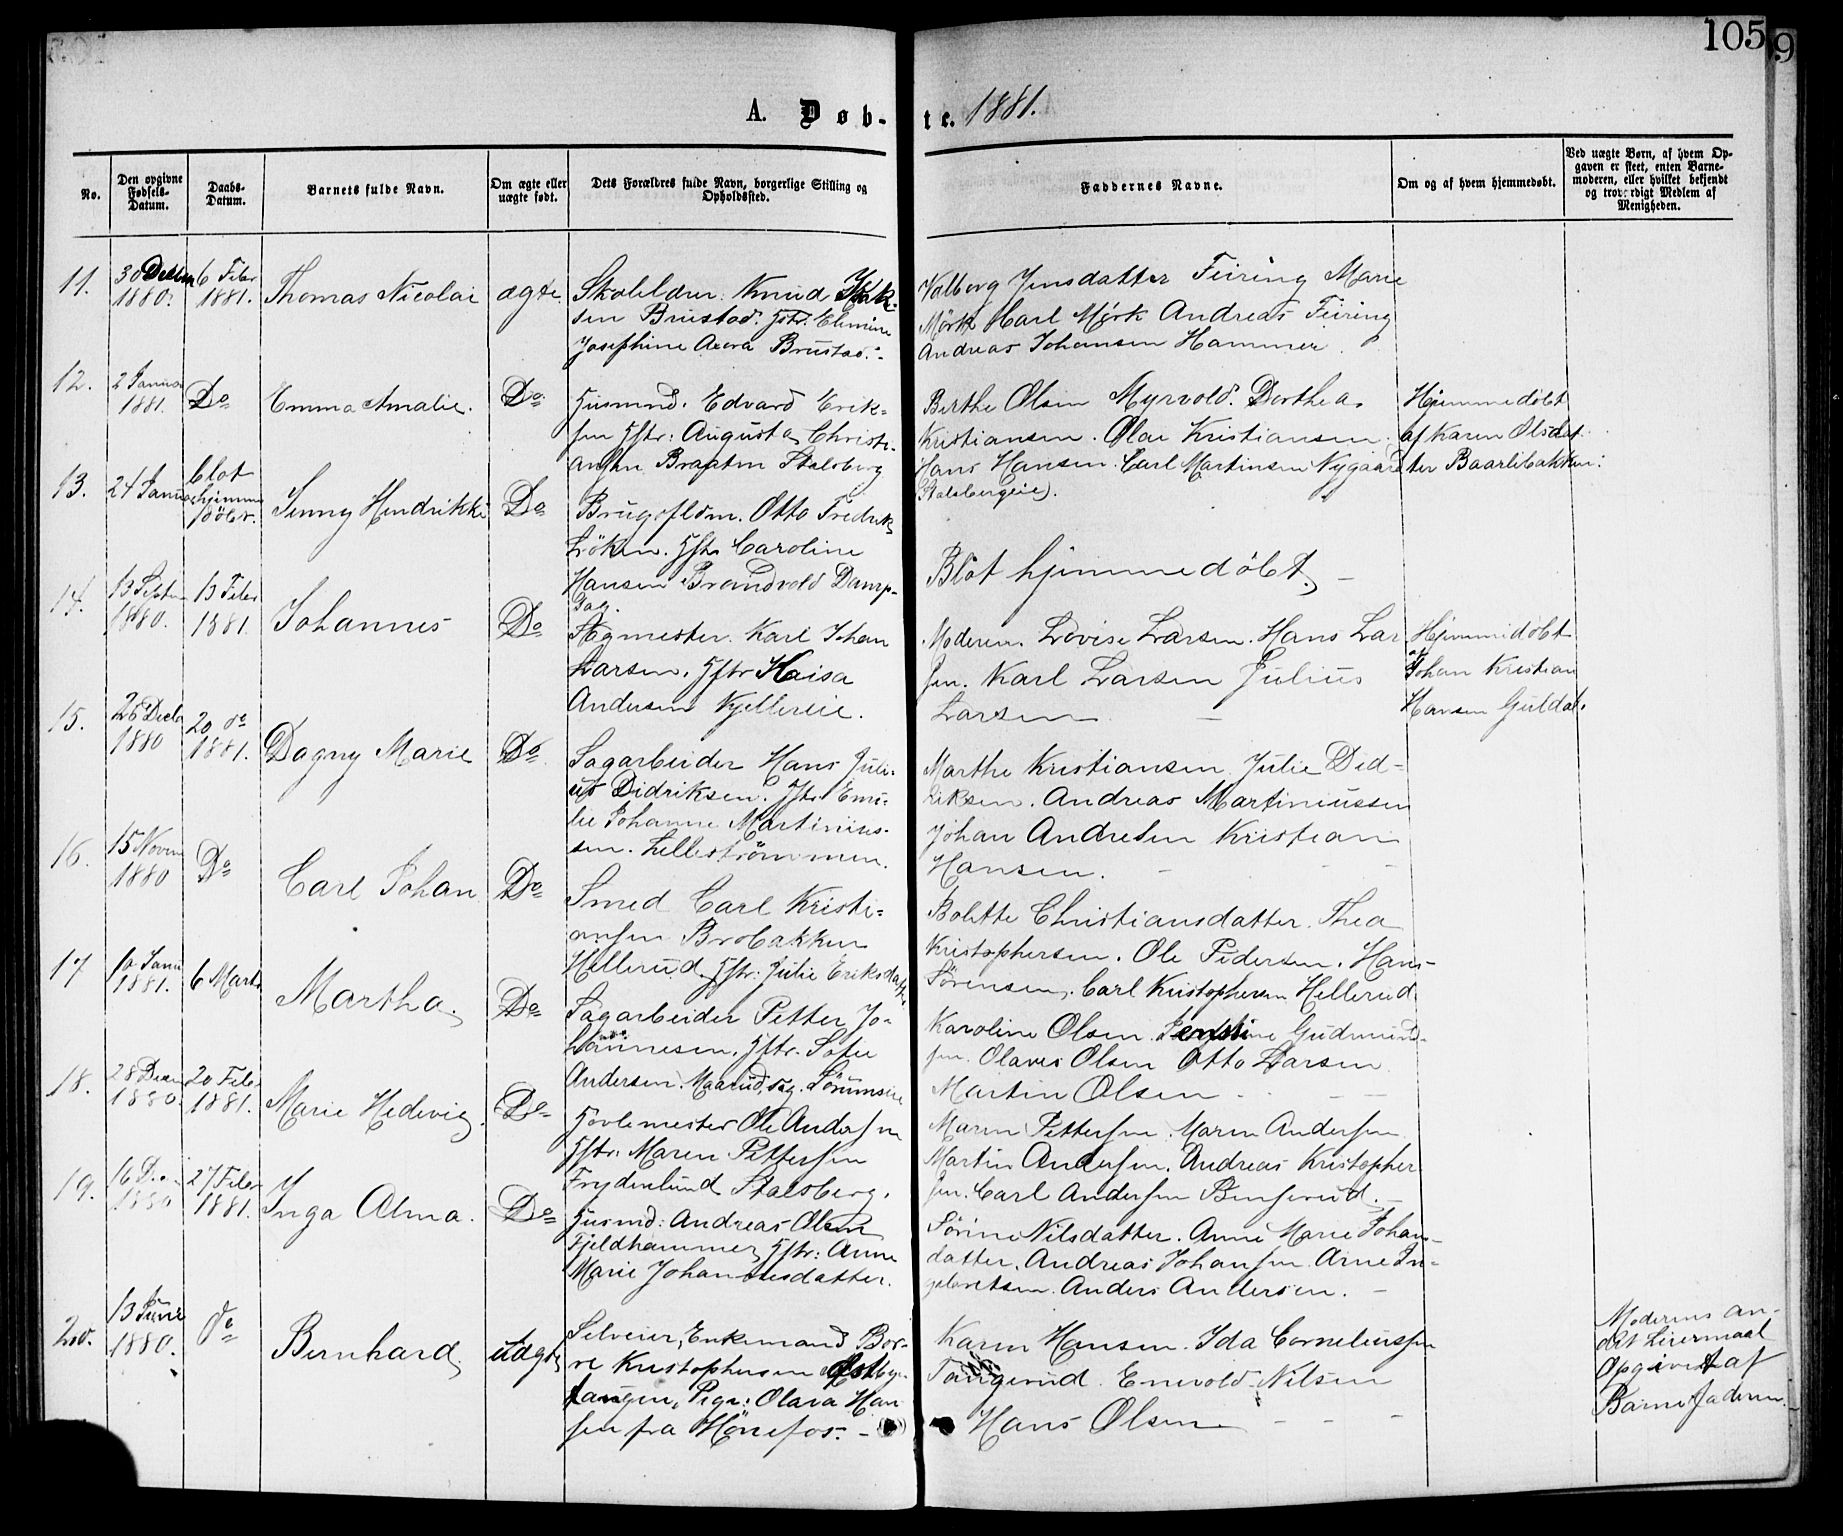 105
9
A. Døb-
te. 1881.
No.
Den opgivne
Fødsels-
Datum.
Daabs-
Datum.
Barnets fulde Navn.
Om ægte eller
uægte født.
Dets Forældres fulde Navn, borgerlige Stilling og
Opholdssted.
Faddernes Navne.
Om og af hvem hjemmedøbt.
Ved uægte Børn, af hvem Op-
gaven er skeet, enten Barne-
moderen, eller hvilket bekjendt
og troværdigt Medlem af
Menigheden.
11.
30 Decbr
1880.
6 Febr
1881.
Thomas Nicolai
ægte
Skolelærer. Knud
sen Brustad. Hstr. Elmine
Josephine Axora Brustad.
Valborg Jensdatter Feiring Marie
Mörk Carl Mörk Andreas Feiring
Andreas Johansen Hammer.
12.
2 Januar
1881.
Do
Emma Amalie.
Do
Husmnd. Edvard Erik-
sen Hstr: Augusta Christi-
ansen Braaten Stalsberg
Berthe Olsen Myrvold. Dorthea
Kristiansen. Olav Kristiansen.
Hans Hansen. Carl Martinsen Nygaard
(Stalsbergeie).
Hjemmedöbt
af Karen Olsdat
ter Baarlibakken.
13.
24 Januar
blot
hjemme
döbt.
Jenny Hendrikke
Do
Brugsfldm. Otto Fredrik
Löken. Hstr Caroline
Hansen Brandvold Damp-
sag.
Blot hjemmedöbt. -
14.
13 Septbr
1880.
13 Febr
1881
Johannes
Do
Sagmester. Karl Johan
Larsen. Hstr Kaisa
Andersen Kjellereie.
Moderen. Lovise Larsen. Hans Lar
sen. Karl Larsen Julius
Larsen -
Hjemmedöbt
af
Johan Kristian
Hansen Guldal.
15.
26 Decb
1880
20 do
1881.
Dagny Marie
Do
Sagarbeider Hans Juli-
us Didriksen. Hstr. Emi-
lie Johanne Martinius-
sen. Lilleströmmen.
Marthe Kristiansen Julie Did-
riksen. Andreas Martiniussen
Johan Andresen Kristian
Hansen. - - -
16.
15 Novem
1880
Do
Carl Johan
Do
Smed Carl Kristi-
ansen Brobakken
Hellerud. Hstr: Julie Eriksdatter
Bolette Christiansdatter. Thea
Kristophersen. Ole Pedersen. Hans
Sörensen. Carl Kristophersen Hellerud.
17
10 Janu
1881.
6 Marts
Martha.
Do
Sagarbeider Petter Jo-
hannesen. Hstr. Sofie
Andersen. Maarud, sag. Sörumseie
Karoline Olsen. Gudmund-
sen. Olaves Olsen Otto Larsen
Martin Olsen - - -
18.
28 Decem
1880.
20 Febr
1881.
Marie Hedevig.
Do
Hövlemester Ole Andersen
Hstr. Maren Pettersen
Frydenlund Stalsberg.
Maren Pettersen. Maren Andersen
Martin Andersen. Andreas Kristopher
sen. Carl Andersen Benserud. -
19.
16 Dec
1880
27 Febr
1881.
Inga Alma.
Do
Husmd: Andreas Olsen
Fjeldhammer, Hstr: Anne
Marie Johannesdatter.
Sörine Nilsdatter. Anne Marie Johan-
datter. Andreas Johansen. Arne In-
gebretsen. Anders Andersen. -
20.
13 Juni
1880.
do
Bernhard
uægte
Selveier, Enkemand Bor-
re Kristophersen
tangen, Pige: Olava Han
sen fra Hönefos. -
Karen Hansen. Ida Corneliussen
Tangerud. Enevold Nilsen
Hans Olsen - - -
Moderens an-
det Leiermaal
Opgivet af
Barnefaderen.